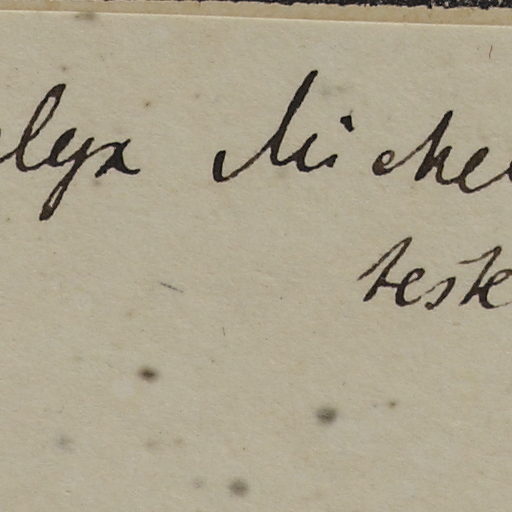 lyx Miche
teste